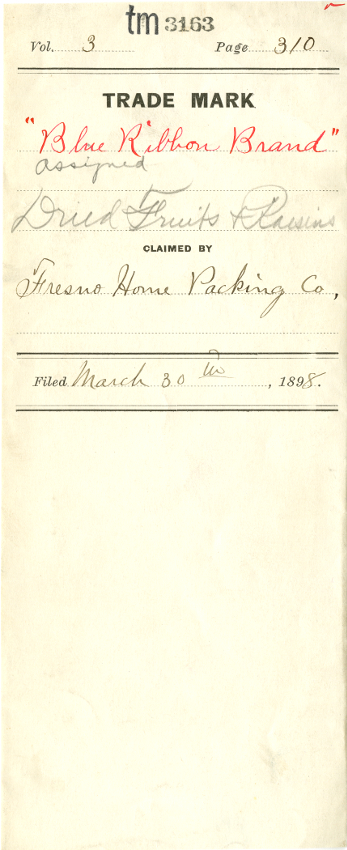 tm 3163
Vol. 3 Page 310
TRADE MARK
"Blue Ribbon Brand"
assigned
Dried Fruits & Raisins
CLAIMED BY
Fresno Home Packing Co,
Filed March 30th, 1898.